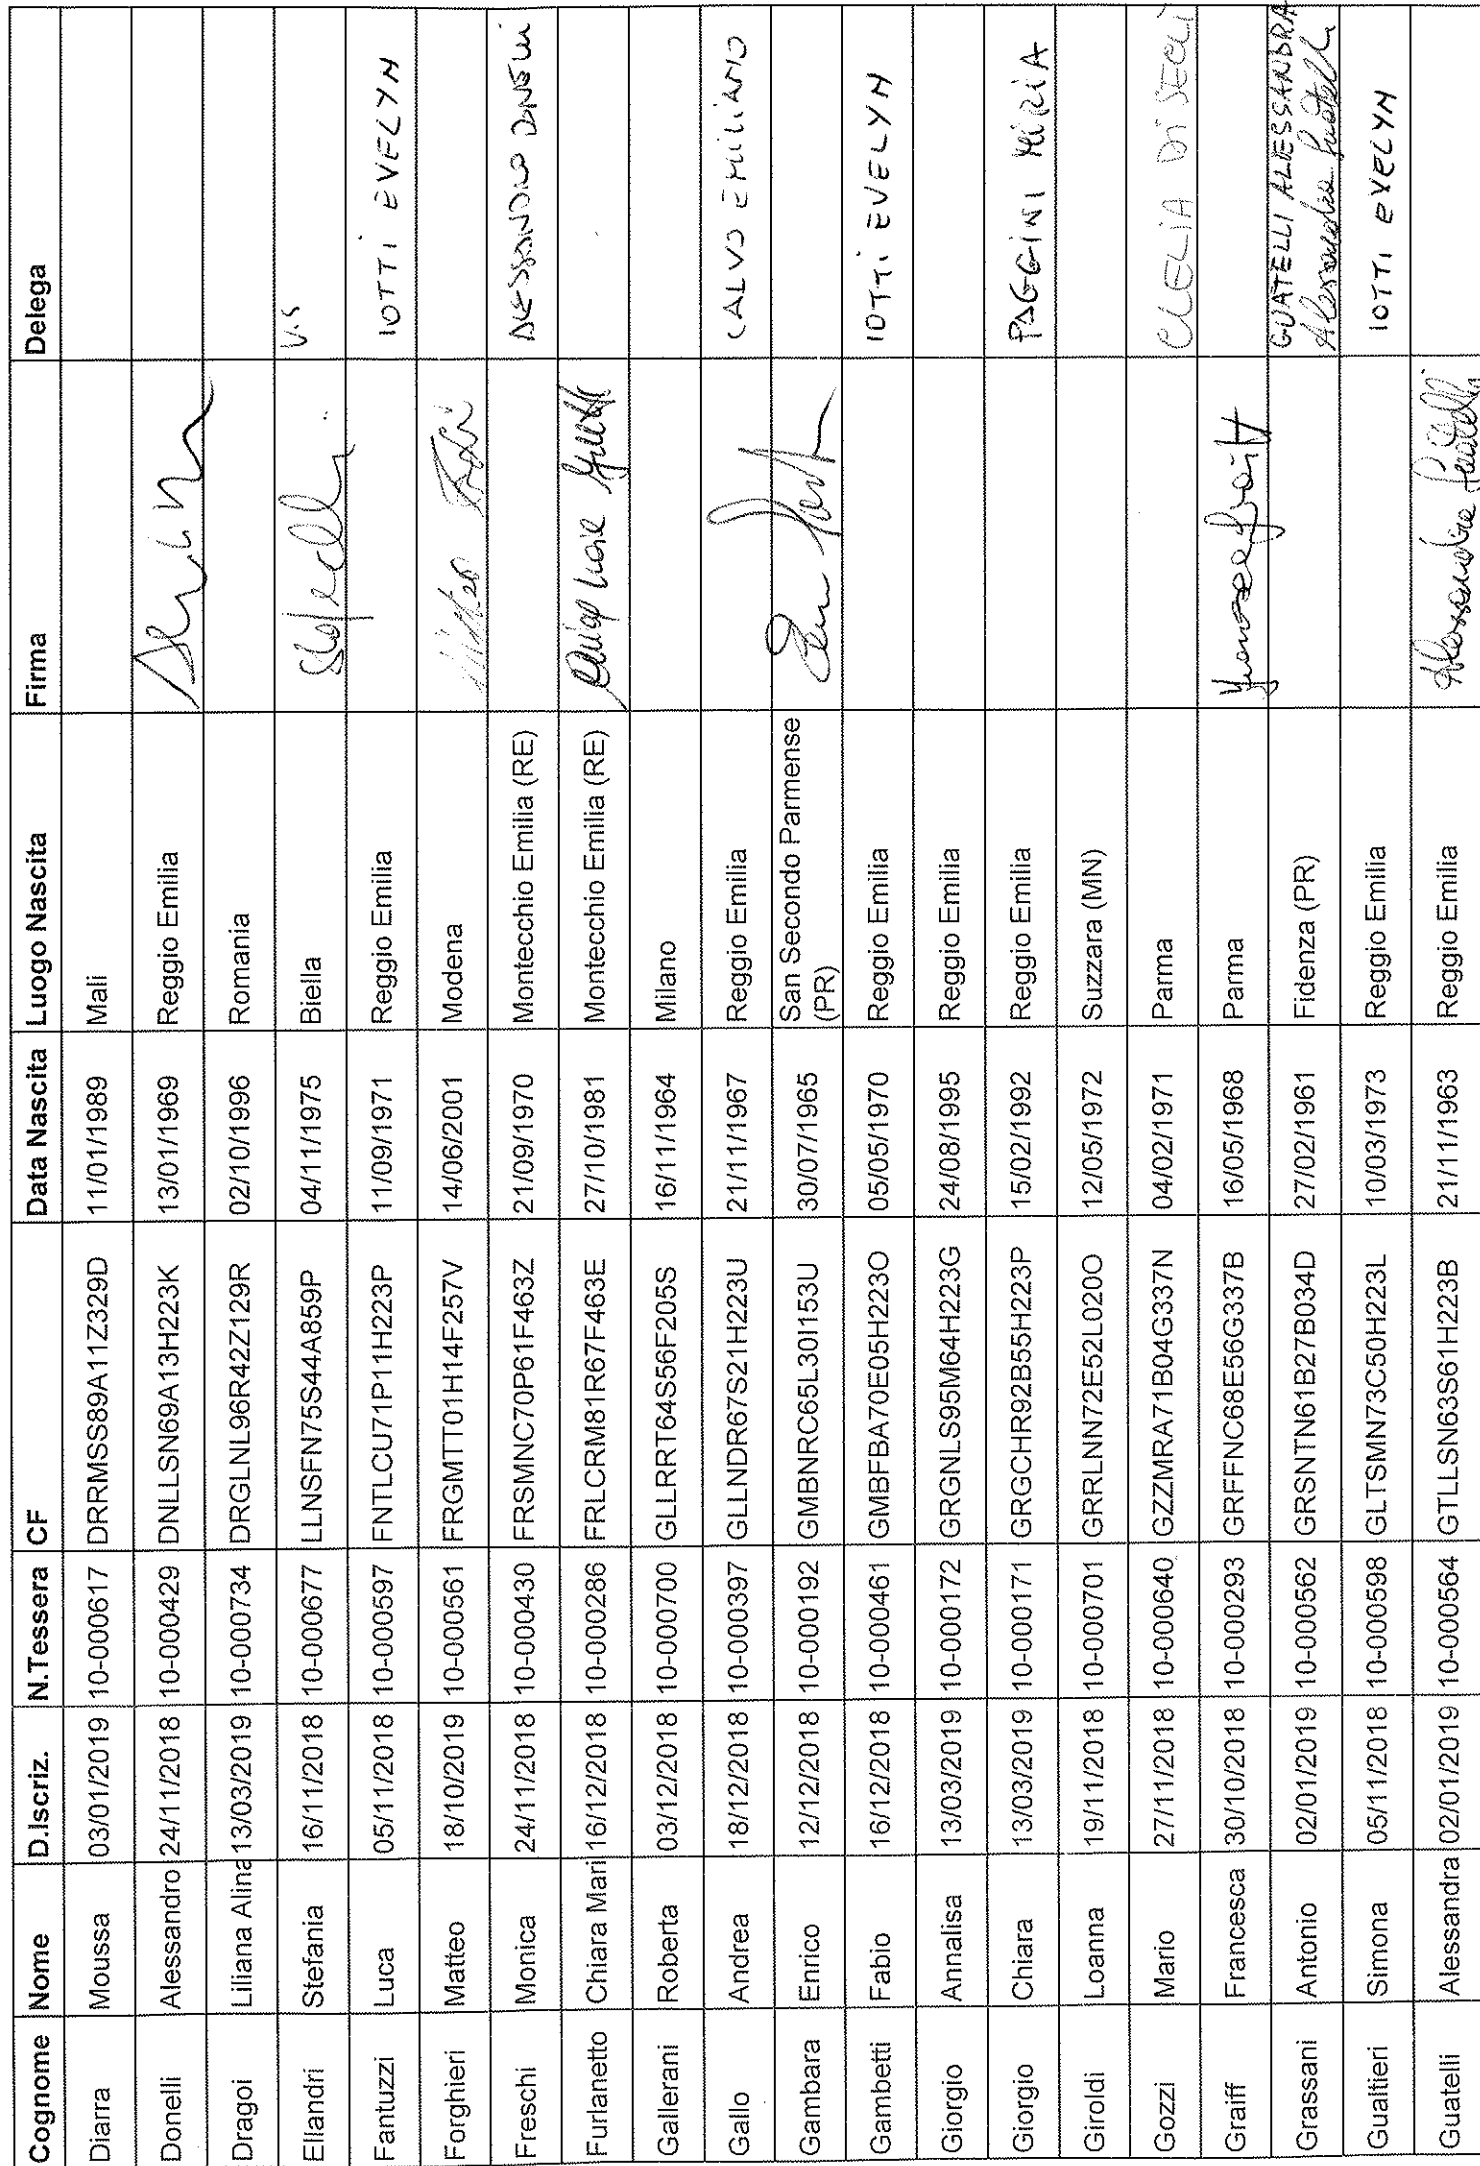 Cognome Nome D.Iscriz. N.Tessera CF Data Nascita Luogo Nascita Firma Delega
Diarra Moussa 03/01/2019 10-000617 DRRMSS89A11Z329D 11/01/1989 Mali
Donelli Alessandro 24/11/2018 10-000429 DNLLSN69A13H223K 13/01/1969 Reggio Emilia
Dragoi Liliana Alina 13/03/2019 10-000734 DRGLNL96R42Z129R 02/10/1996 Romania
Ellandri Stefania 16/11/2018 10-000677 LLNSFN75S44A859P 04/11/1975 Biella
Fantuzzi Luca 05/11/2018 10-000597 FNTLCU71P11H223P 11/09/1971 Reggio Emilia IOTTI EVELYN
Forghieri Matteo 18/10/2019 10-000561 FRGMTT01H14F257V 14/06/2001 Modena
Freschi Monica 24/11/2018 10-000430 FRSMNC70P61F463Z 21/09/1970 Montecchio Emilia (RE) ALESSANDRO DONELLI
Furlanetto Chiara Mari 16/12/2018 10-000286 FRLCRM81R67F463E 27/10/1981 Montecchio Emilia (RE)
Gallerani Roberta 03/12/2018 10-000700 GLLRRT64S56F205S 16/11/1964 Milano
Gallo Andrea 18/12/2018 10-000397 GLLNDR67S21H223U 21/11/1967 Reggio Emilia CALVO EMILIANO
Gambara Enrico 12/12/2018 10-000192 GMBNRC65L30I153U 30/07/1965 San Secondo Parmense
(PR)
Gambetti Fabio 16/12/2018 10-000461 GMBFBA70E05H223O 05/05/1970 Reggio Emilia IOTTI EVELYN
Giorgio Annalisa 13/03/2019 10-000172 GRGNLS95M64H223G 24/08/1995 Reggio Emilia
Giorgio Chiara 13/03/2019 10-000171 GRGCHR92B55H223P 15/02/1992 Reggio Emilia PAGGINI MIRIA
Giroldi Loanna 19/11/2018 10-000701 GRRLNN72E52L020O 12/05/1972 Suzzara (MN)
Gozzi Mario 27/11/2018 10-000640 GZZMRA71B04G337N 04/02/1971 Parma CLELIA DI SECLÌ
Graiff Francesca 30/10/2018 10-000293 GRFFNC68E56G337B 16/05/1968 Parma
Grassani Antonio 02/01/2019 10-000562 GRSNTN61B27B034D 27/02/1961 Fidenza (PR) GUATELLI ALESSANDRA
Alessandra Guatelli
Gualtieri Simona 05/11/2018 10-000598 GLTSMN73C50H223L 10/03/1973 Reggio Emilia IOTTI EVELYN
Guatelli Alessandra 02/01/2019 10-000564 GTLLSN63S61H223B 21/11/1963 Reggio Emilia Alessandra Guatelli